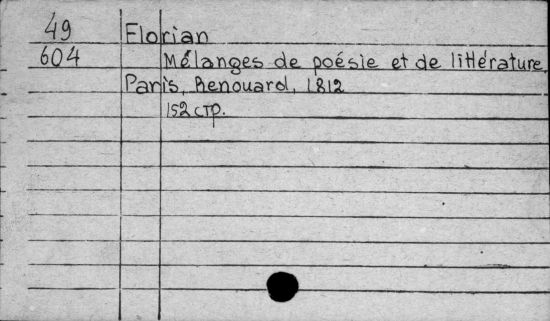 49 Florian
604 Mélanges de poésie et de littérature,
Paris, Renouard, 1812
152 стр.